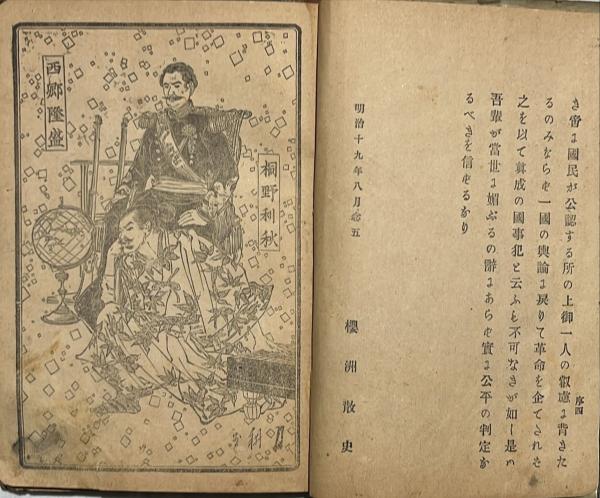 序四
き啻に國民が公認する所の上御一人の叡慮に背きた
るのみならず一國の輿論に戻りて革命を企てされば
之を以て眞成の國事犯と云ふも不可なきが如し是れ
吾輩が當世に媚ぶるの辭にあらず實に公平の判定な
るべきを信ずるなり
明治十九年八月念五
櫻洲散史
桐野利秋
西郷隆盛